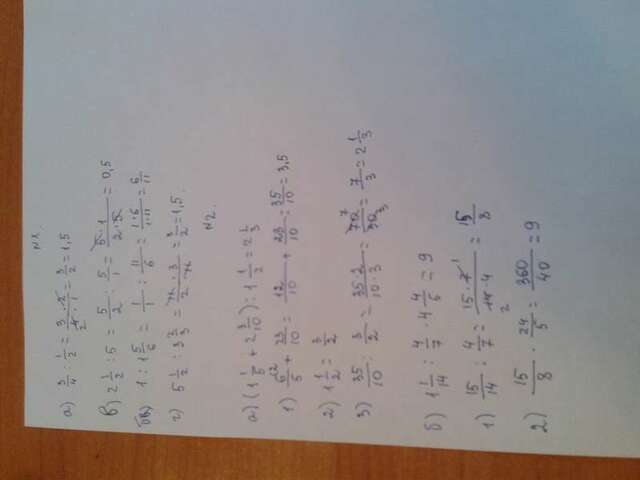 №1.
а) 3/4 : 1/2 = 3·2/4·1 = 3/2 = 1,5
в) 2 1/2 : 5 = 5/2 : 5/1 = 5·1/2·5 = 0,5
1 : 1 5/6 = 1/1 : 11/6 = 1·6/1·11 = 6/11
г) 5 1/2 : 3 2/3 = 11·3/2·11 = 3/2 = 1,5.
№2.
а) (1 1/5 + 2 3/10) : 1 1/2 = 2 1/3
1) 6/5 + 23/10 = 12/10 + 23/10 = 35/10 = 3,5
2) 1 1/2 = 3/2
3) 35/10 : 3/2 = 35·2/10·3 = 70/30 = 7/3 = 2 1/3
б) 1 1/14 : 4/7 · 4 4/5 = 9
1) 15/14 : 4/7 = 15·7/14·4 = 15/8
2) 15/8 · 24/5 = 360/40 = 9